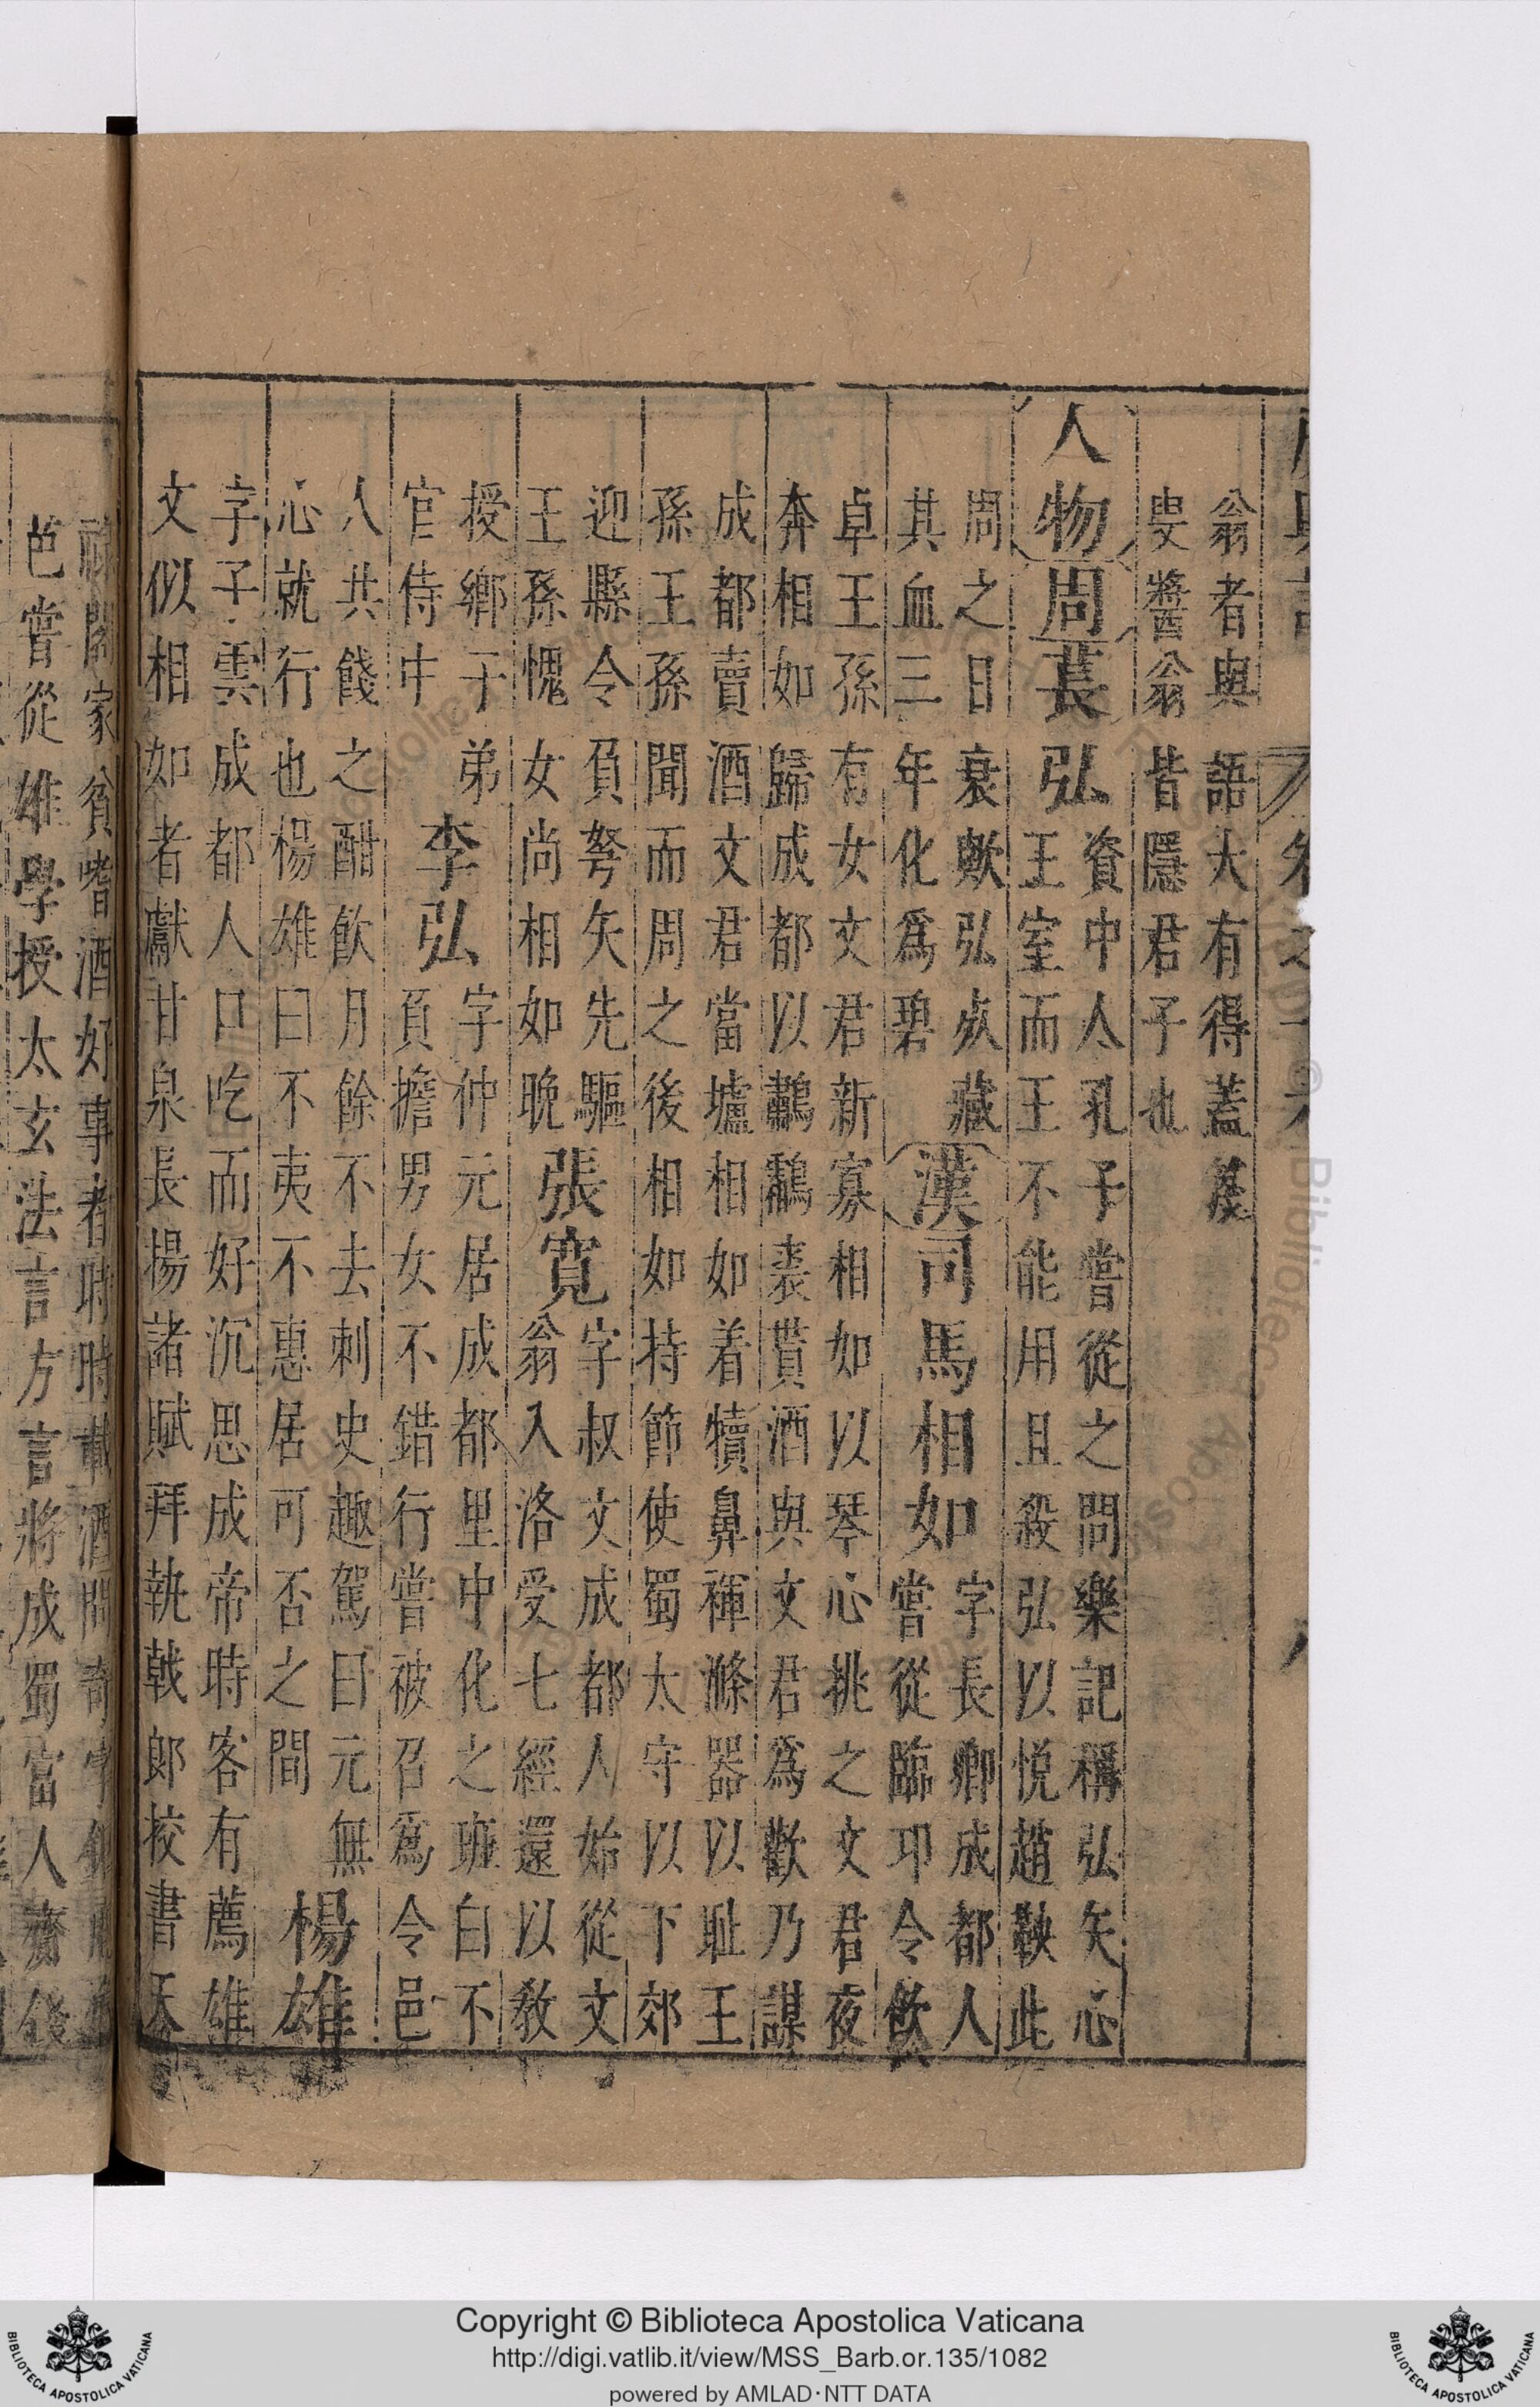 翁者與語大有得蓋
叟醬翁皆隱君子也
人物 周 萇弘
資中人孔子嘗從之問樂記稱弘矢心
王室而王不能用且殺弘以悅趙鞅此
周之日衰歟弘死藏
其血三年化爲碧
漢 司馬相如
字長卿成都人
嘗從臨卭令飲
卓王孫有女文君新寡相如以琴心挑之文君夜
奔相如歸成都以鷫鸘裘貰酒與文君爲歡乃謀
成都賣酒文君當壚相如着犢鼻褌滌器以耻王
孫王孫聞而周之後相如持節使蜀太守以下郊
迎縣令負弩矢先驅
王孫愧女尚相如晚
張寬
字叔文成都人始從文
翁入洛受七經還以敎
授鄉子弟
官侍中
李弘
字仲元居成都里中化之班白不
負擔男女不錯行嘗被召爲令邑
人共餞之酣飲月餘不去刺史趣駕曰元無
心就行也楊雄曰不夷不惠居可否之間
楊雄
字子雲成都人口吃而好沉思成帝時客有薦雄
文似相如者獻甘泉長揚諸賦拜執戟郎挍書天
祿閣家貧嗜酒好事者時時載酒問奇字
芭嘗從雄學授太玄法言方言將成蜀富人賫錢
Copyright © Biblioteca Apostolica Vaticana
http://digi.vatlib.it/view/MSS_Barb.or.135/1082
powered by AMLAD·NTT DATA
BIBLIOTECA APOSTOLICA VATICANA
BIBLIOTECA APOSTOLICA VATICANA